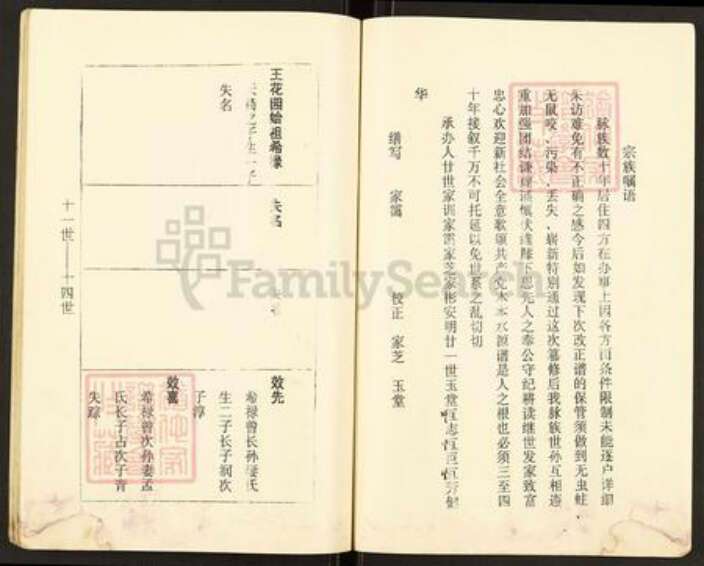 宗族嘱语
脉族数十年居住四方在办事上因各方面条件限制未能逐户详细
采访难免有不正确之感今后如发现下次改正谱的保管须做到无虫蛀、
无鼠咬、污染、丢失、崭新特别通过这次篡修后我脉族世孙互相造
重加强团结谦 思先人之奉公守纪耕读继世发家致富
忠心欢迎新社会全意歌颂共产党木本水源谱是人之根也必须三至四
十年接叙千万不可托延以免世系之乱切切
承办人廿世家训家霭家芝家彬安明廿一世玉堂恒志恒恒芳健
华
缮写 家霭 校正 家芝 玉堂
王花园始祖希禄
失名
失名
效先
希禄曾长孙妻氏
生二子长子润次
子淳
效熹
希禄曾次孙妻孟
氏长子占次子青
失踪
十一世——十四世
FamilySearch